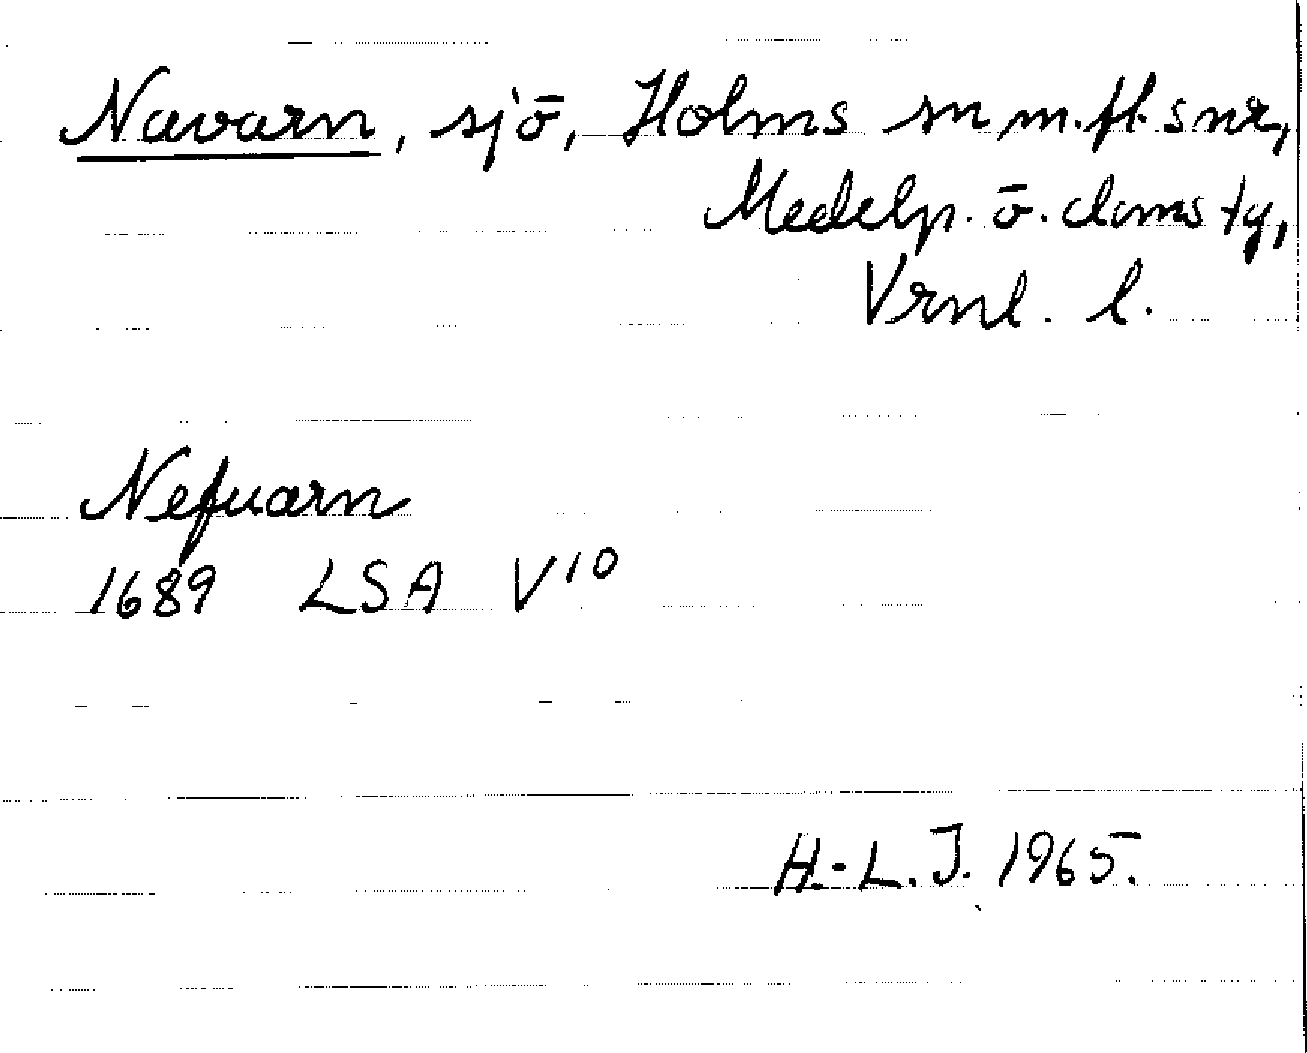 Navarn, sjö, Holms sn m.fl. snr,
Medelp. ö. doms tg,
Vrnl. l.
Nefuarn
1689 LSA V10
H.-L.J. 1965.